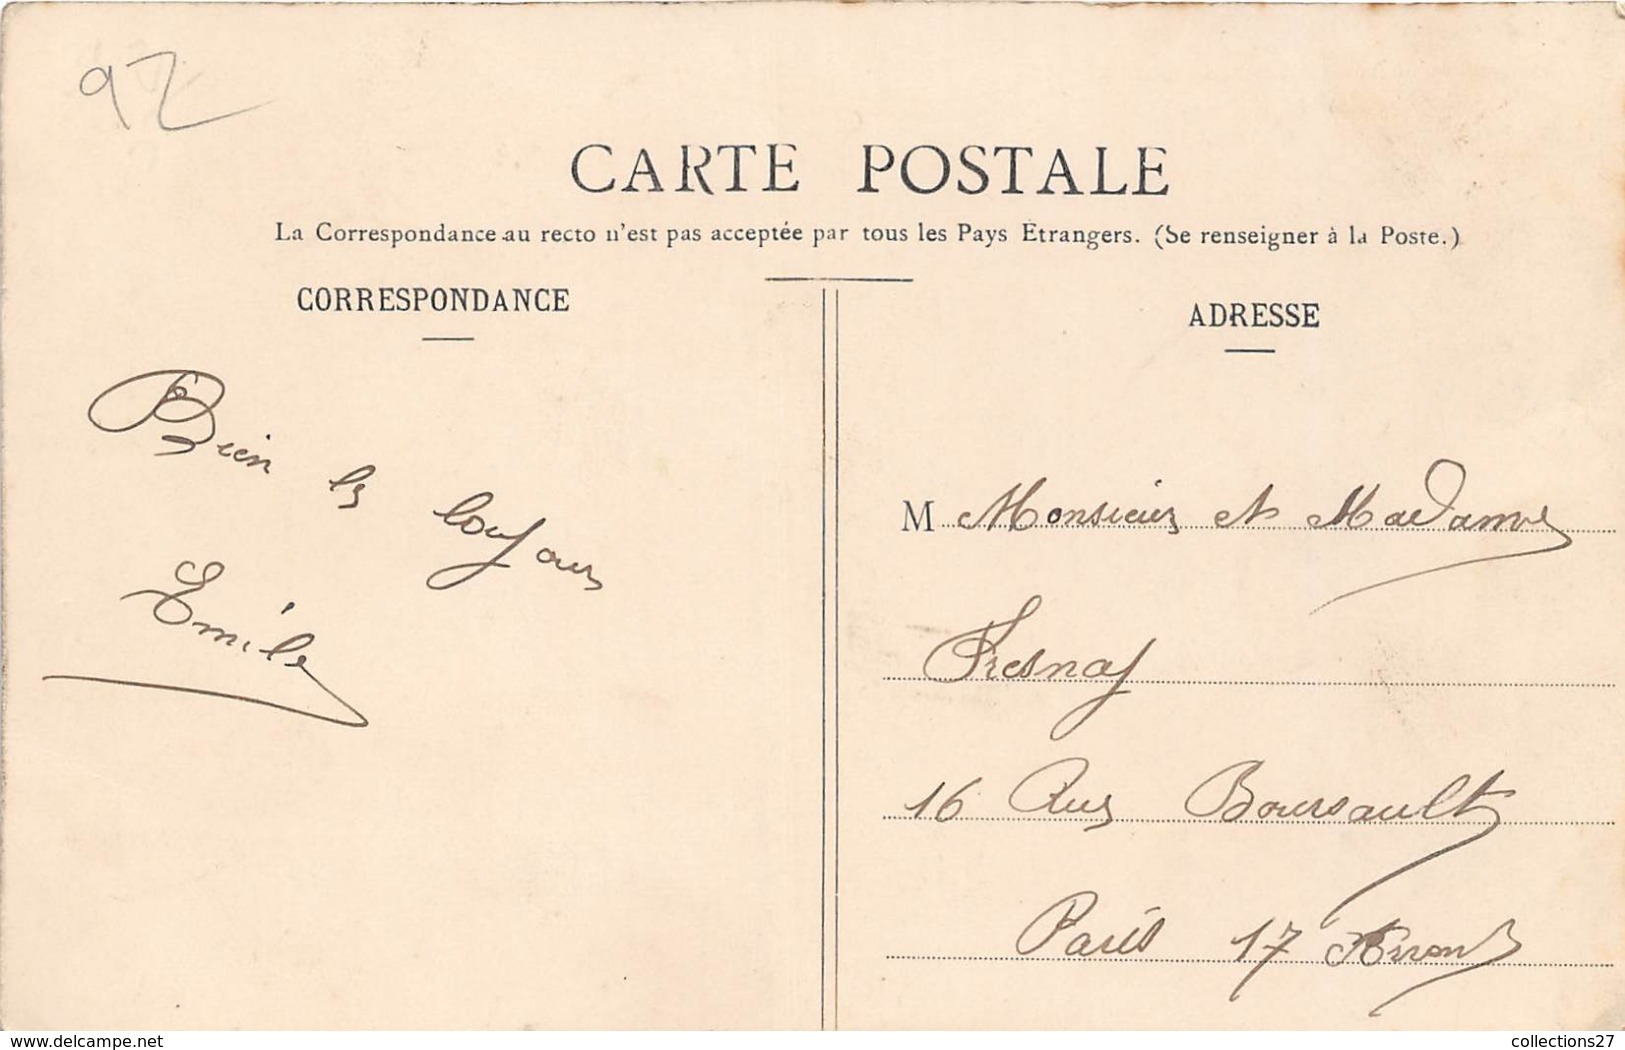 92
CARTE POSTALE
La Correspondance au recto n'est pas acceptée par tous les Pays Étrangers. (Se renseigner à la Poste.)
CORRESPONDANCE
ADRESSE
Bien le
Emile
M Monsieur et Madame
Fresnay
16 Rue Boursault
Paris 17 Arron
delcampe.net
collections27